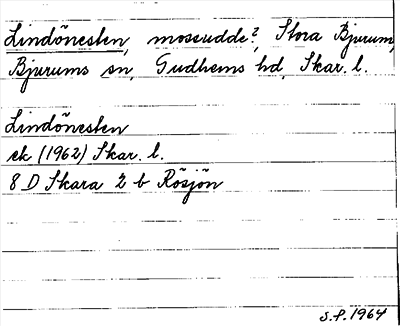 Lindönesten, mossudde?, Stora Bjurum,
Bjurums sn, Gudhems hd, Skar. l.
Lindönesten
ek (1962) Skar. l.
8 D Skara 2 b Rösjön
S.P. 1964